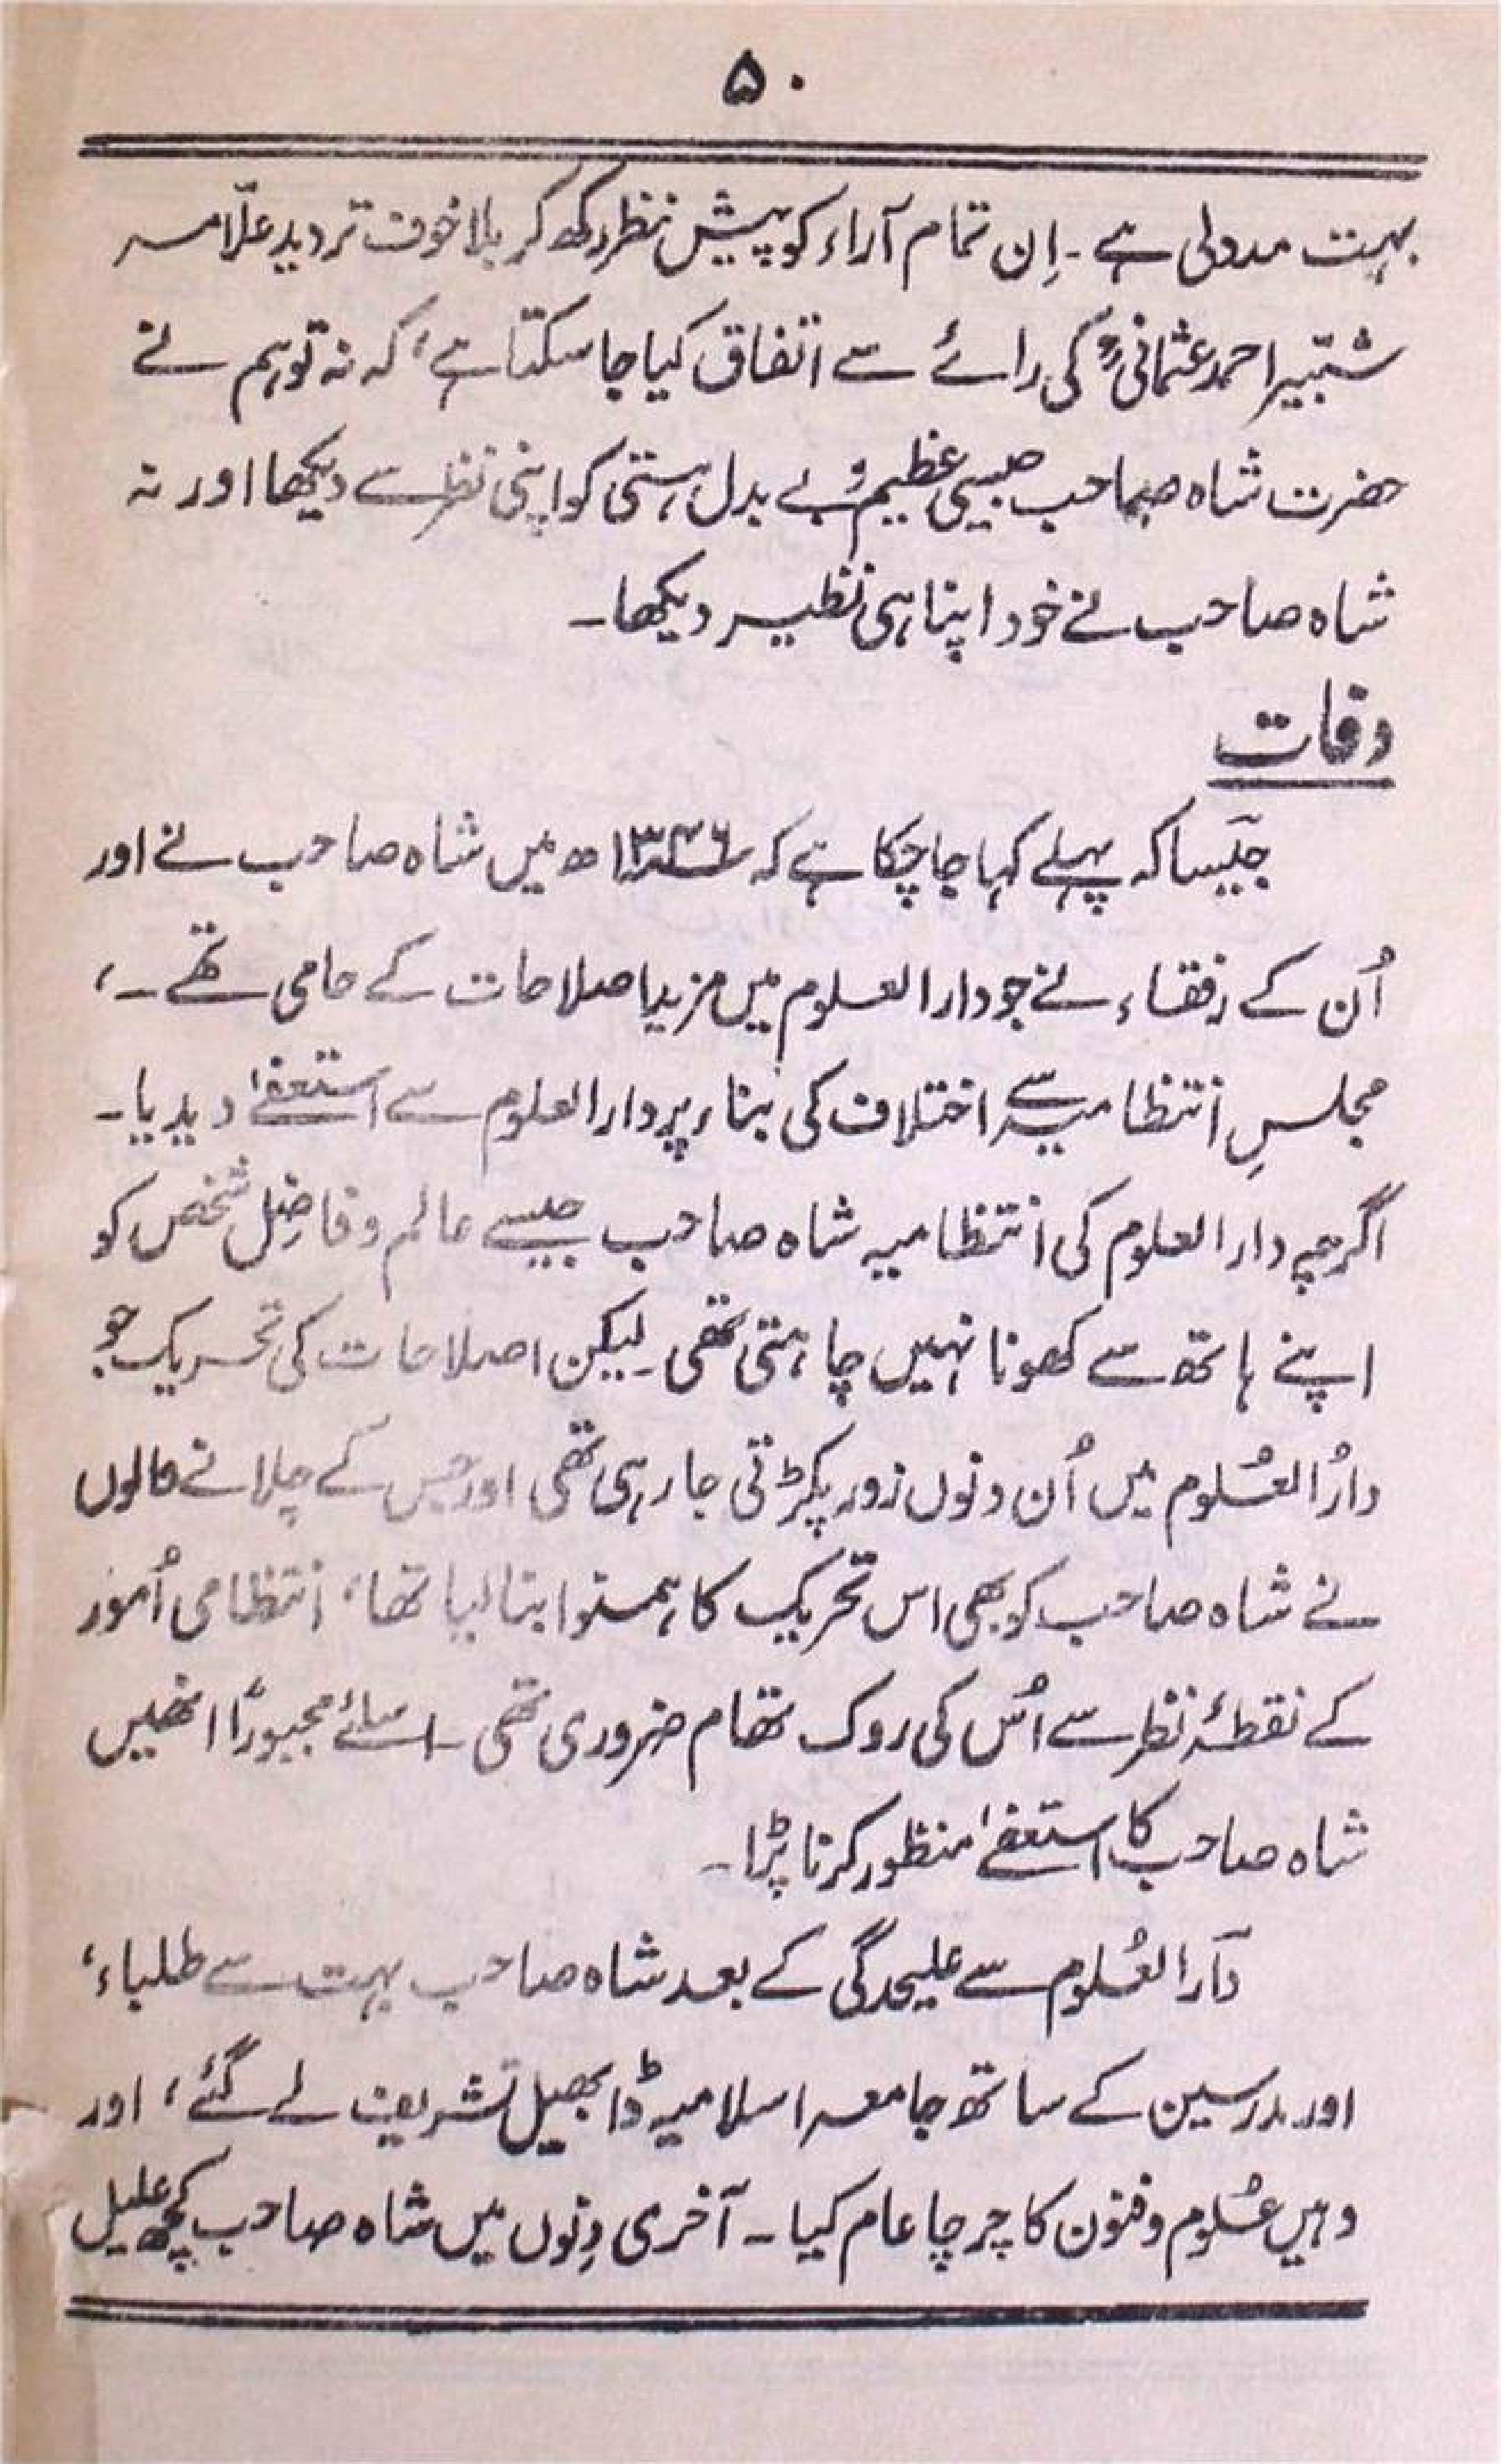 ۵۰
بہت مدد لی ہے ۔ اِن تمام آراء کو پیش نظر رکھ کر بلا خوف تردید علّامہ
شبّیر احمد عثمانیؒ کی رائے سے اتفاق کیا جا سکتا ہے، کہ نہ تو ہم نے
حضرت شاہ صاحب جیسی عظیم و بے بدل ہستی کو اپنی نظر سے دیکھا اور نہ
شاہ صاحب نے خود اپنا ہی نظیر دیکھا ۔
وفات
جَیسا کہ پہلے کہا جا چکا ہے کہ ۱۳۴۶ھ میں شاہ صاحب نے اور
اُن کے رفقاء نے جو دار العلوم میں مزید اصلاحات کے حامی تھے ۔،
مجلسِ انتظامیہ سے اختلاف کی بناء پر دار العلوم سے استعفےٰ دیدیا ۔
اگرچہ دار العلوم کی انتظامیہ شاہ صاحب جیسے عالم و فاضِل شخص کو
اپنے ہاتھ سے کھونا نہیں چاہتی تھی ۔ لیکن اصلاحات کی تحریک جو
دارُ العُلوم میں اُن دنوں زور پکڑتی جا رہی تھی اور جس کے چلانے والوں
نے شاہ صاحب کو بھی اس تحریک کا ہمنوا بنا لیا تھا، انتظامی اُمور
کے نقطۂ نظر سے اُس کی روک تھام ضروری تھی ۔ اسلئے مجبوراً انھیں
شاہ صاحب کا استعفےٰ منظور کرنا پڑا ۔
دَار العُلوم سے علیحدگی کے بعد شاہ صاحب بہت سے طلباء،
اور مدرسین کے ساتھ جامعہ اسلامیہ ڈابھیل تشریف لے گئے، اور
وہیں عُلوم و فنون کا چرچا عام کیا ۔ آخری دِنوں میں شاہ صاحب کچھ علیل